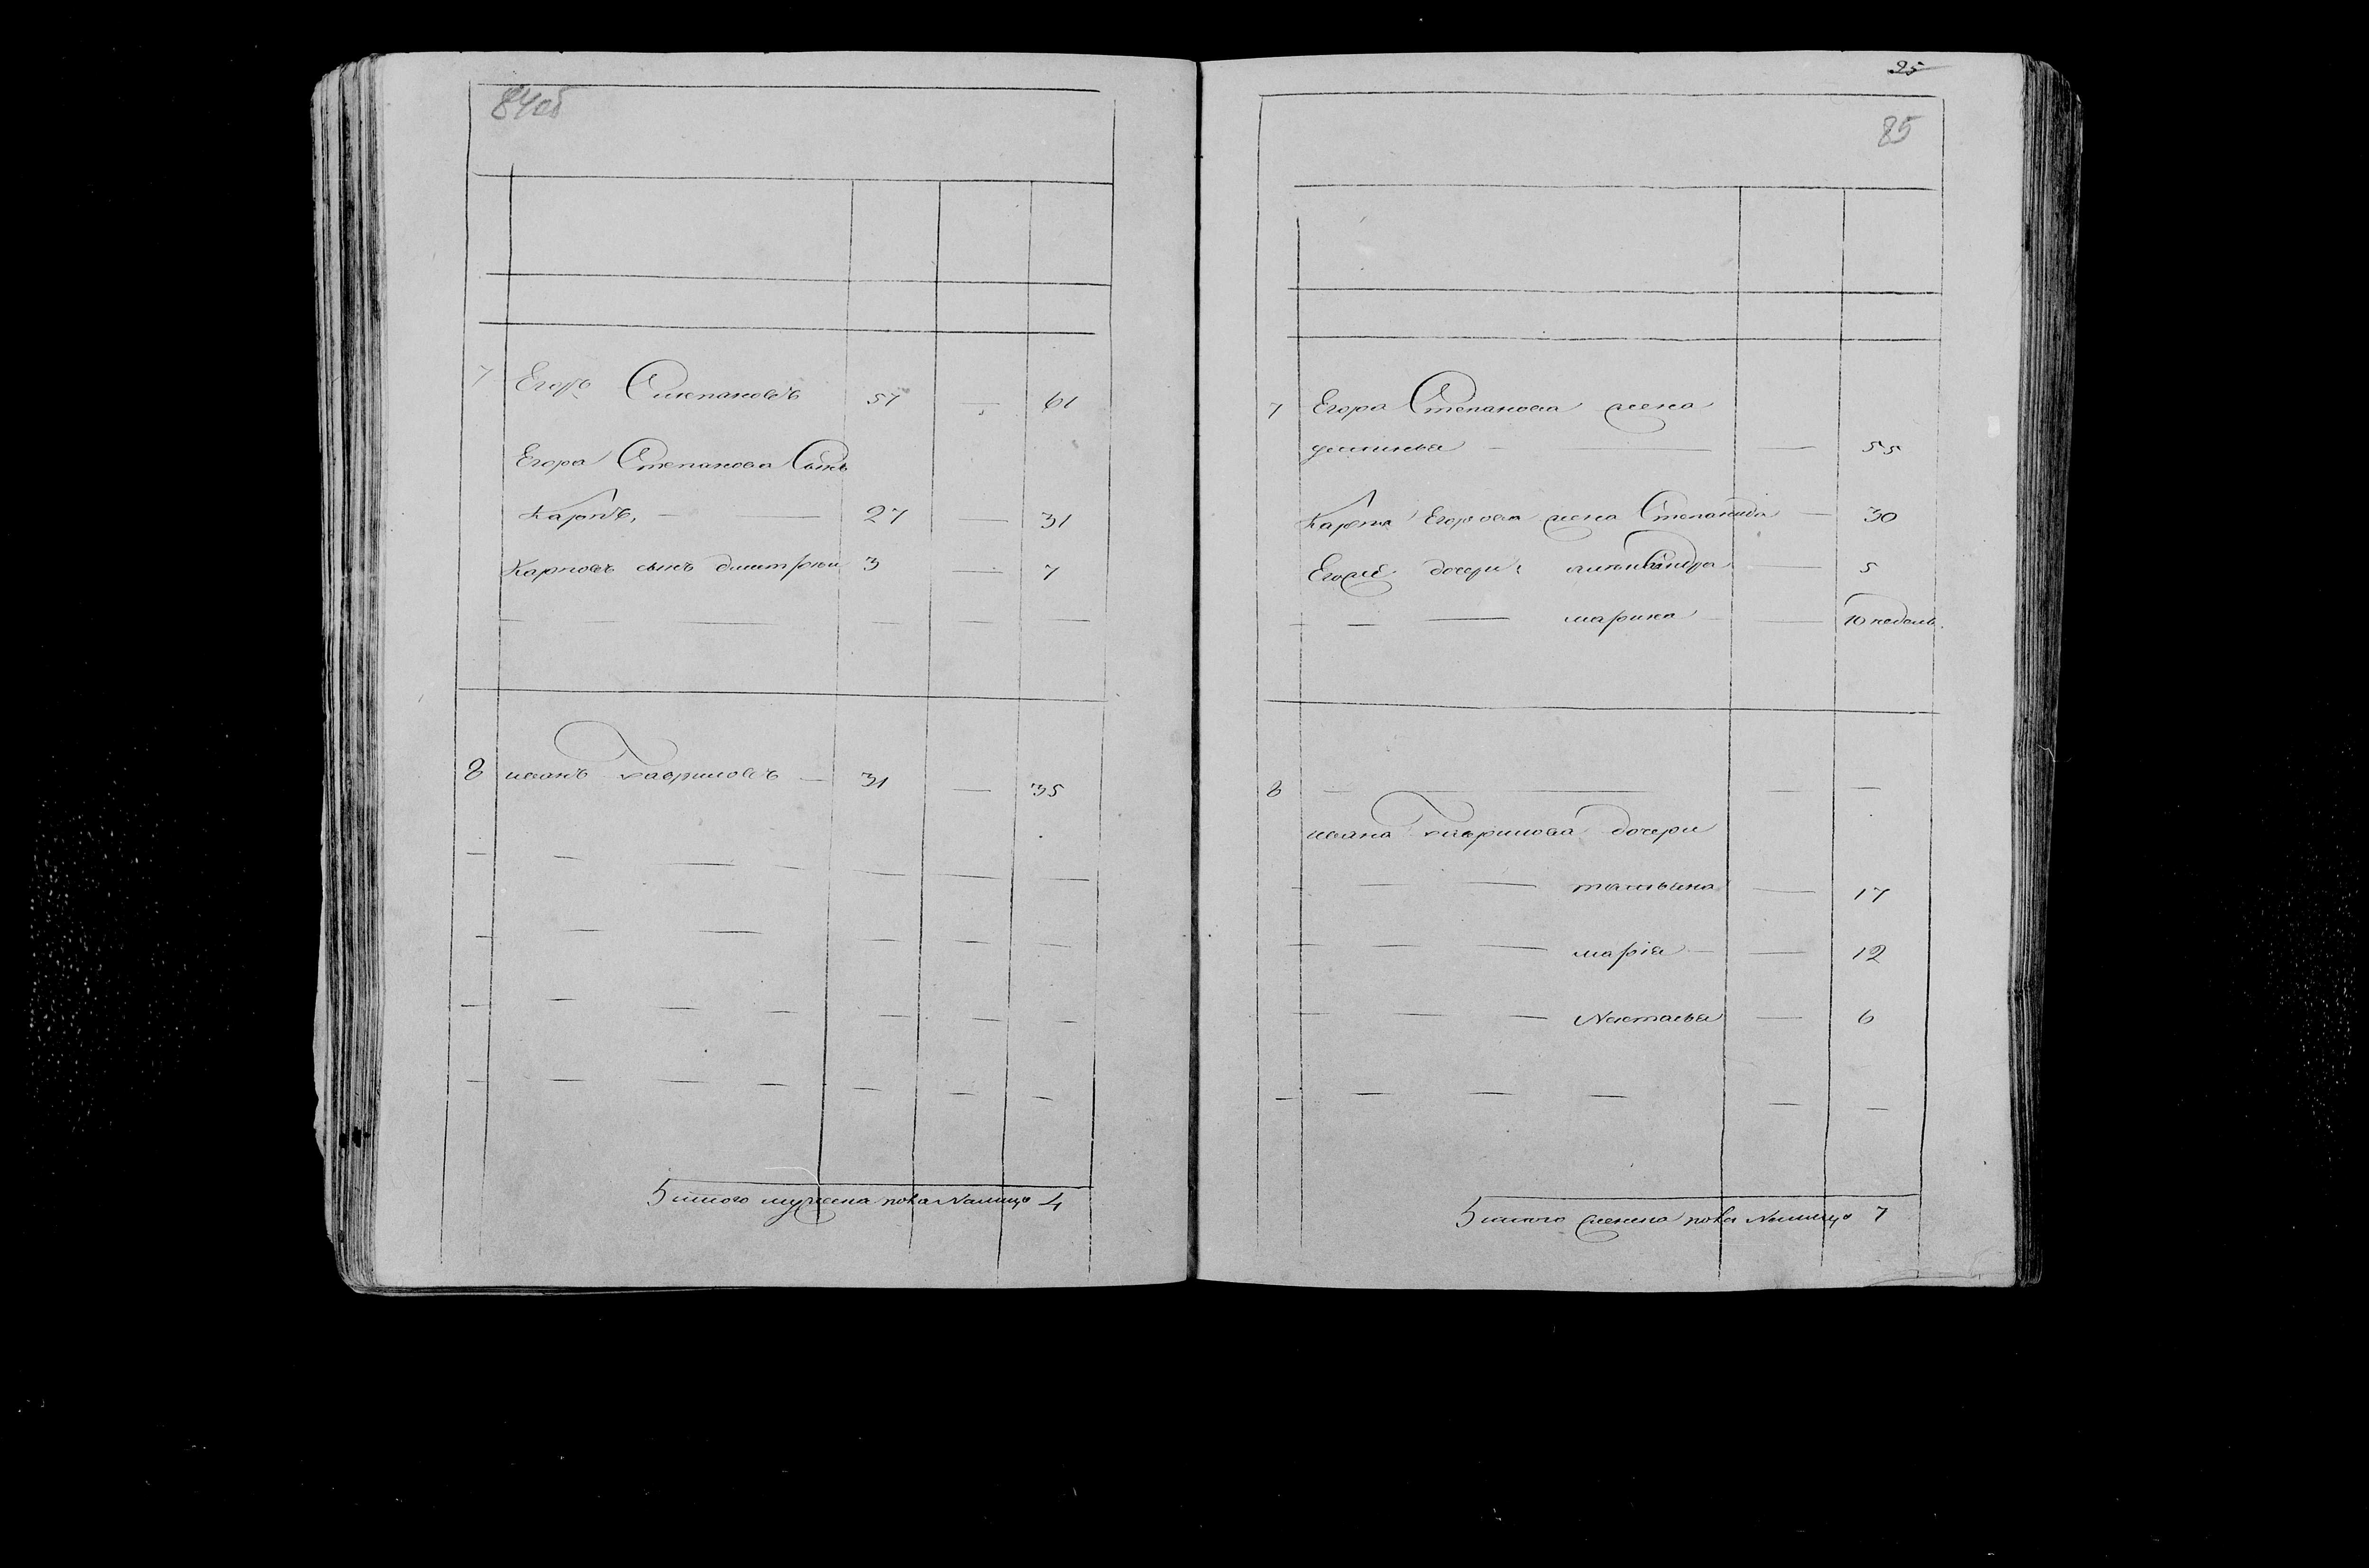 84об
7 Егоръ Степановъ 57 — 61
Егора Степанова Сынъ
Карпъ, — 27 — 31
Карповъ сынъ дмитрѣи 3 — 7
8 иванъ Гавриловъ — 31 — 35
Итого мужеска пола Налицо 4
25
85
7 Егора Степанова жена
устинья — — 55
Карпа Егорова жена Степанида — 30
Егоже дочери: александра — 5
марина — 10 недель.
8 — — —
ивана Гаврилова дочери
татьяна — 17
марiя — 12
Настасья — 6
Итого женска пола Налицо 7